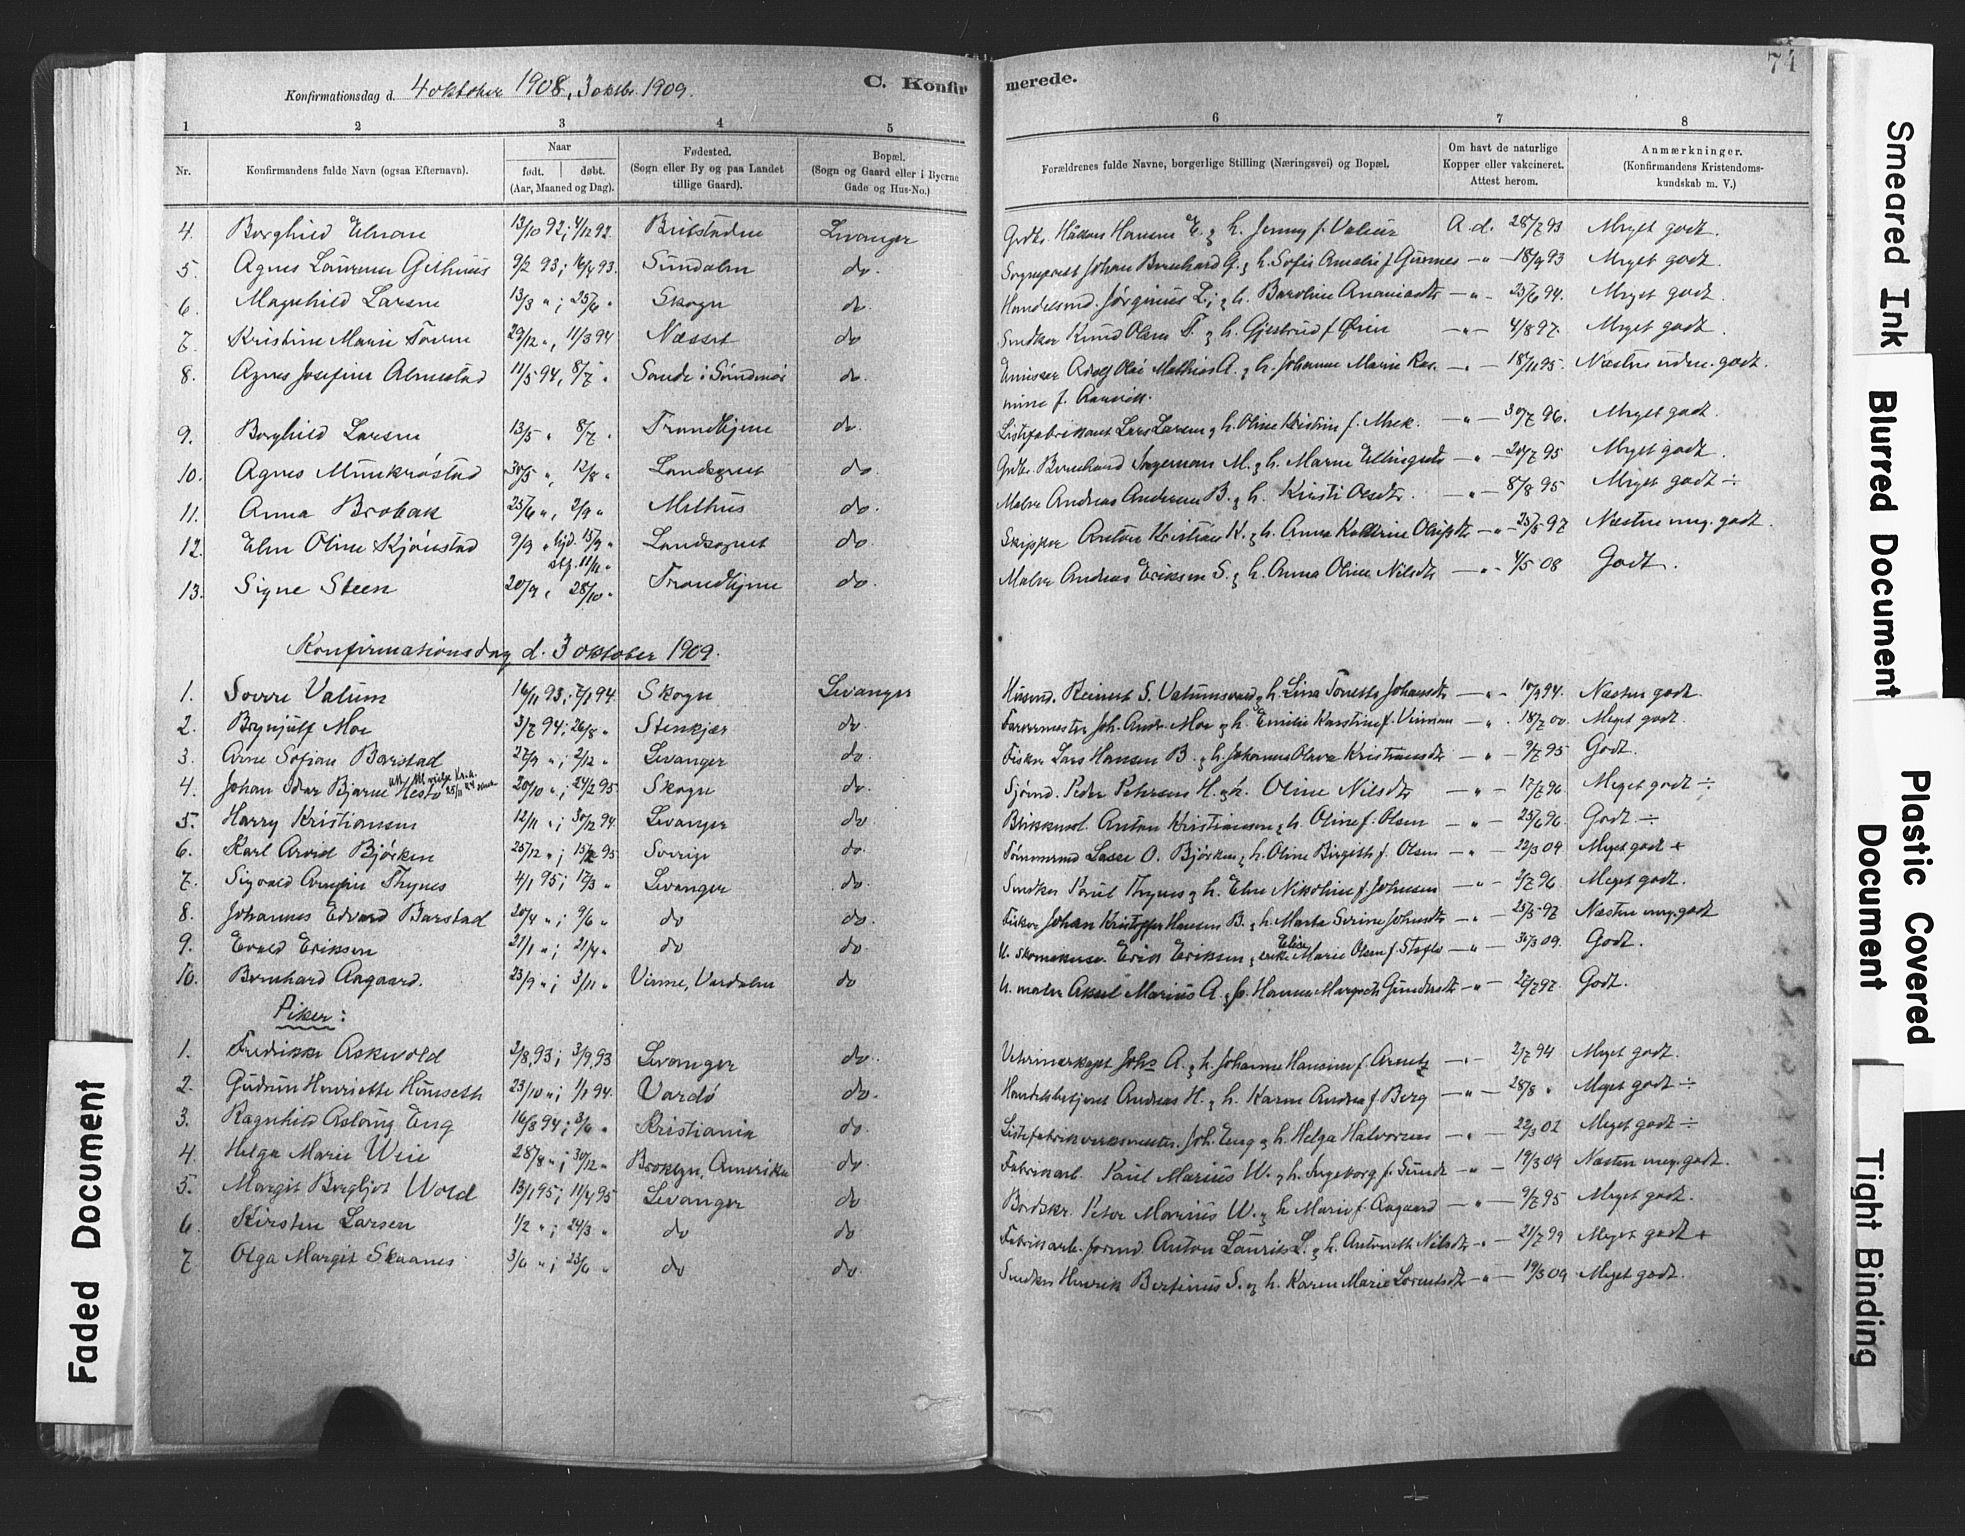 74
Konfirmationsdag d. 4 oktober 1908, 3 oktbr. 1909.
C. Konfirmerede.
1 2 3 4 5 6 7 8
Nr.
Konfirmandens fulde Navn (ogsaa Efternavn).
Naar
født. døbt.
(Aar, Maaned og Dag).
Fødested.
(Sogn eller By og paa Landet
tillige Gaard).
Bopæl.
(Sogn og Gaard eller i Byerne
Gade og Hus-No.)
Forældrenes fulde Navne, borgerlige Stilling (Næringsvei) og Bopæl.
Om havt de naturlige
Kopper eller vakcineret.
Attest herom.
Anmærkninger.
(Konfirmandens Kristendoms-
kundskab m. V.)
4. Borghild 13/10 92; 4/12 92. Levanger Håkon Hansen E. & h. Jenny f. A. d. 28/7 93 Meget godt.
5. Agnes Laurense 9/2 93; 16/4 93. Sundalen do. Sogneprest Johan Bernhard G. & h. Sofie Amalie f. — " — 18/9 93 Meget godt.
6. Magnhild Larsen 13/3 "; 25/6 " Skogn do. Handelsmd. Jørginus L. & h. — " — 25/6 94. Meget godt.
7. Kristine Marie 29/12 ", 11/3 94 Næsset do Snedker Knud Olsen T. & h. Gjertrud f. — " — 4/8 97. Meget godt.
8. Agnes Josefine Almestad 11/5 94, 8/7 " Sande i Søndmør do. Emissær Adolf Olai Mathias A. & h. Johanne Marie Ras- — " — 18/11 95. Næsten udm. godt.
mine f.
9. Borghild Larsen 13/5 " 8/7 " Trondhjem do. Listefabrikant Lars Larsen & h. Oline Kristine f. — " — 30/7 96. Meget godt.
10. Agnes Munkrøstad 30/5 ", 12/8 " Landsognet do. M. & h. Maren Ellingsdtr — " — 20/7 95 Meget godt.
11. Anna Brobak 25/6 ", 2/9 " Melhus do. Maler Andreas Andersen B. & h. Kirsti Olsdtr. — " — 8/8 95 Meget godt ÷
12. Elen Oline Kjønstad 9/9 " hjd. 15/9 " Landsognet do. Skipper Anton Kristian K. & h. Anna Katrine — " — 25/5 97 Næsten meg. godt.
stf. 11/11 "
13. Signe Steen 20/9 " 28/10 " Trondhjem do. Maler Andreas Eriksen S. & h. Anna Oline Nilsdtr — " — 4/5 08 Godt.
Konfirmationsdag d. 3 oktober 1909.
1. Sverre Valum 16/11 93; 7/1 94 Skogn Levanger Husmd. Reinert S. Valumsvald & h. Lina Tonette Johansdtr — " — 10/9 94. Næsten godt.
2. Brynjulf Moe 3/7 94; 26/8 " Stenkjær do. Farvermester Joh. Andr. Moe & h. Emilie Karstine f. — " — 18/7 00. Meget godt.
3. Arne Sofian Barstad 27/9 "; 2/12 " Levanger do. Fisker Lars Hansen B. & h. Johanna Olava Kristiansdtr — " — 9/7 95 Godt.
4. Johan Odar Bjarne Hestø 20/10 "; 24/2 95 Skogn do. Sjømd. Peder Petersen H. & h. Oline Nilsdtr — " — 17/7 96 Meget godt ÷
5. Harry Kristiansen 12/11 "; 30/12 94. Levanger do Blikkensl. Anton Kristiansen & h. Oline f. Olsen — " — 25/6 96. Godt ÷
6. Karl Arvid Bjørken 25/12 "; 15/2 95 Sverige do. Tømmermd Lasse O. Bjørken & h. Oline Birgitte f. Olsen — " — 22/3 09 Meget godt +
7. Sigvald Arnfin Thynes 4/1 95; 17/3 " Levanger do. Snedker Paul Thynes & h. Elen Nikoline f. Johnsen — " — 2/7 96. Meget godt.
8. Johannes Edvard Barstad 20/4 "; 9/6 " do do. Fisker Johan Kristoffer Hansen B. & h. Marta Serine — " — 25/5 97 Næsten meg. godt
9. Evald Eriksen 21/1 "; 21/4 " do do. U. skomakersv. Erik Eriksen & enke Elise Marie Olsen f. — " — 30/3 09. Godt.
10. Bernhard Aagaard. 23/9 "; 3/11 " Vinne, Værdalen do U. maler Aksel Marius A. & p. Hanna — " — 22/7 97. Godt.
Piker:
1. Fredrikke Askevold 2/8 93; 3/9 93 Levanger do. Veterinærkapt. Johs A. & h. Johanne Hansine f. Arentz — " — 2/7 94 Meget godt.
2. Gudrun Henriette Hunseth 23/10 "; 1/1 94. Vardø do. Handelsbetjent Andreas H. & h. Karen Andrea f. Berg — " — 28/8 " Meget godt ÷
3. Ragnhild Aslaug Eng 16/3 94; 3/6 " Kristiania do. Listefabrikverksmester Joh. Eng & h. Helga Halvorsen — " — 22/3 02 Meget godt ÷
4. Helga Marie Weie 28/8 "; 30/12 " Broklyn, Amerika do. Fabrikarb. Paul Marius W. & h. Ingeborg f. — " — 19/3 09 Næsten meg. godt.
5. Margit Bergljot Wold 13/1 95; 11/4 95 Levanger do Peter Marius W. & h. Marie f. Aagaard — " — 9/7 95 Meget godt.
6. Kirsten Larsen 1/2 "; 24/3 " do do Fabrikarb. formd. Anton Laurits L. & h. Antonette Nilsdtr — " — 21/7 99 Meget godt +
7 Olga Margit Skaanes 3/6 "; 23/6 " do do. Snedker Henrik Bertinius S. & h. Karen Marie Lorentsdtr — " — 19/3 09 Meget godt.
Smeared Ink
Blurred Document
Plastic Covered
Document
Tight Binding
Faded Document